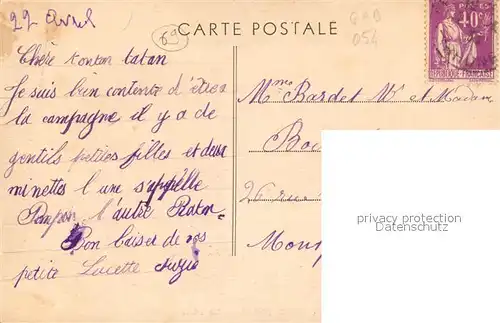 22 Avril
CARTE POSTALE
69
G 2 D
054
POSTES
40c
REPUBLIQUE FRANÇAISE
Chère tonton tatan
Je suis bien contente d'être a
la campagne il y a de
gentils petites filles et deux
minettes l'une s'appelle
Pompon l'autre Raton
Bon baiser de vos
petite Lucette Suzie
Mme Bardet Vve et
Bou
26 rue
Mon
privacy protection
Datenschutz